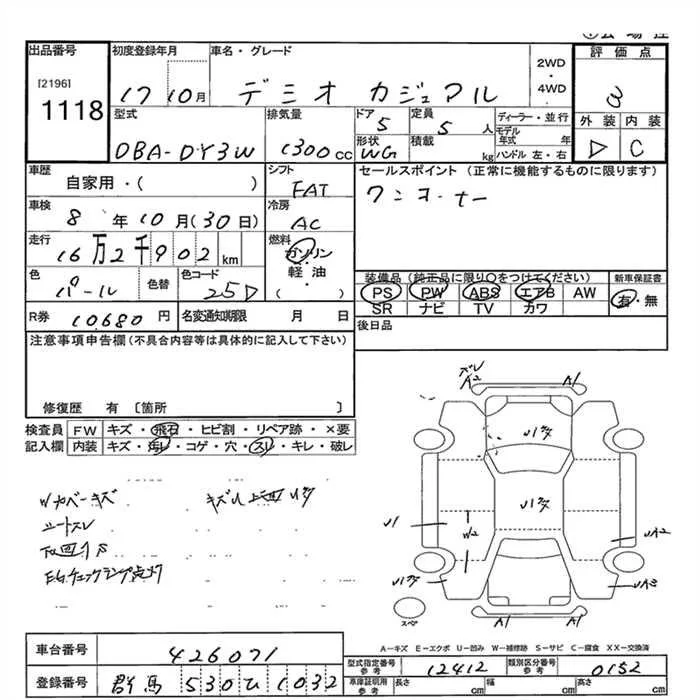 出品番号 初度登録年月 車名・グレード 2WD・4WD 評価点
[2196] 1118 17 10月 デミオ カジュアル 3
型式 排気量 ドア 定員 ディーラー・並行 外装 内装
DBA-DY3W 1300cc 5 5人 モデル年式 年 D C
形状 積載
WG kg ハンドル 左・右
車歴 シフト セールスポイント (正常に機能するものに限ります)
自家用・( ) FAT ワンオーナー
車検 冷房
8年10月(30日) AC
走行 燃料
16万2千902km ガソリン・軽油・( )
色 色替 色コード 装備品(純正品に限り○をつけてください) 新車保証書
パール 25D PS PW ABS エアB AW 有・無
SR ナビ TV カワ
R券 10680円 名変通知期限 月 日 後日品
注意事項申告欄(不具合内容等は具体的に記入して下さい)
修復歴 有〔箇所 〕
検査員 FW キズ・飛石・ヒビ割・リペア跡・×要
記入欄 内装 キズ・汚レ・コゲ・穴・スレ・キレ・破レ
Wカバーキズ キズ凹上回り多
シートスレ
下回りサビ
EGチェックランプ点灯
ズレ
A2 A1
U1多
U1多
U1 W2 UA2
U1多 UA3
スペア A1 A1
A-キズ E-エクボ U-凹み W-補修跡 S-サビ C-腐食 XX-交換済
車台番号 426071
型式指定番号 参考 12412 類別区分番号 参考 0152
登録番号 群馬 530 ひ 1032
車庫証明用 参考 長さ cm 幅 cm 高さ cm